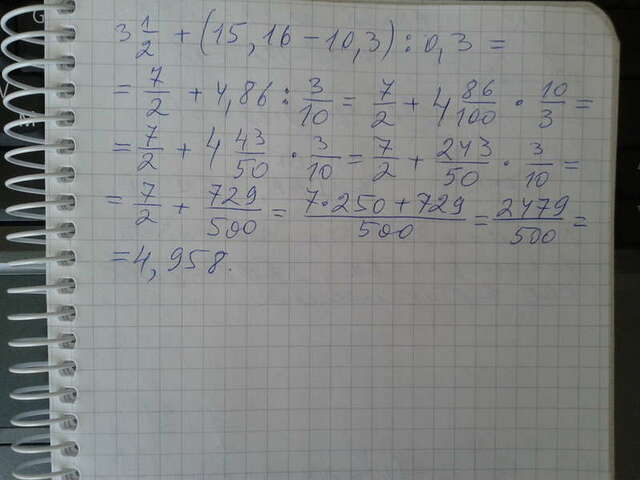 3 1/2 + (15,16 - 10,3) : 0,3 =
= 7/2 + 4,86 : 3/10 = 7/2 + 4 86/100 · 10/3 =
= 7/2 + 4 43/50 · 3/10 = 7/2 + 243/50 · 3/10 =
= 7/2 + 729/500 = (7·250 + 729)/500 = 2479/500 =
= 4,958.